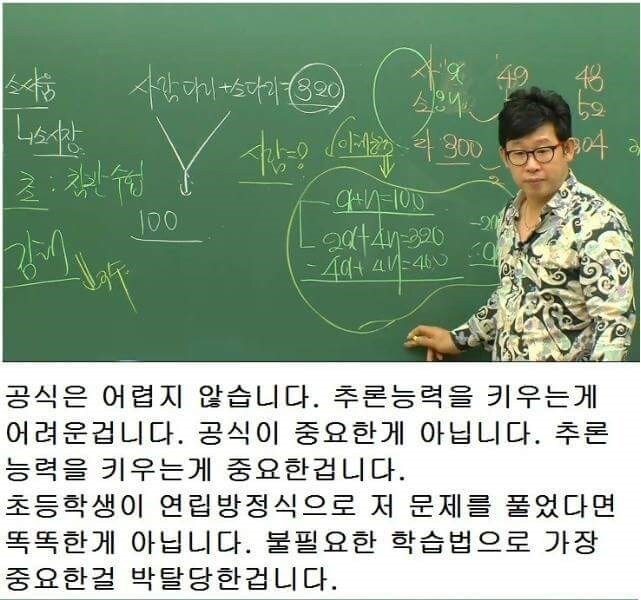 소싸움
↳소시장
사람다리+소다리=320
100
사람=?
사 49 48
소 52
다 300 304
x+y=100
2x+4y=320
-4x+4y=400
공식은 어렵지 않습니다. 추론능력을 키우는게
어려운겁니다. 공식이 중요한게 아닙니다. 추론
능력을 키우는게 중요한겁니다.
초등학생이 연립방정식으로 저 문제를 풀었다면
똑똑한게 아닙니다. 불필요한 학습법으로 가장
중요한걸 박탈당한겁니다.